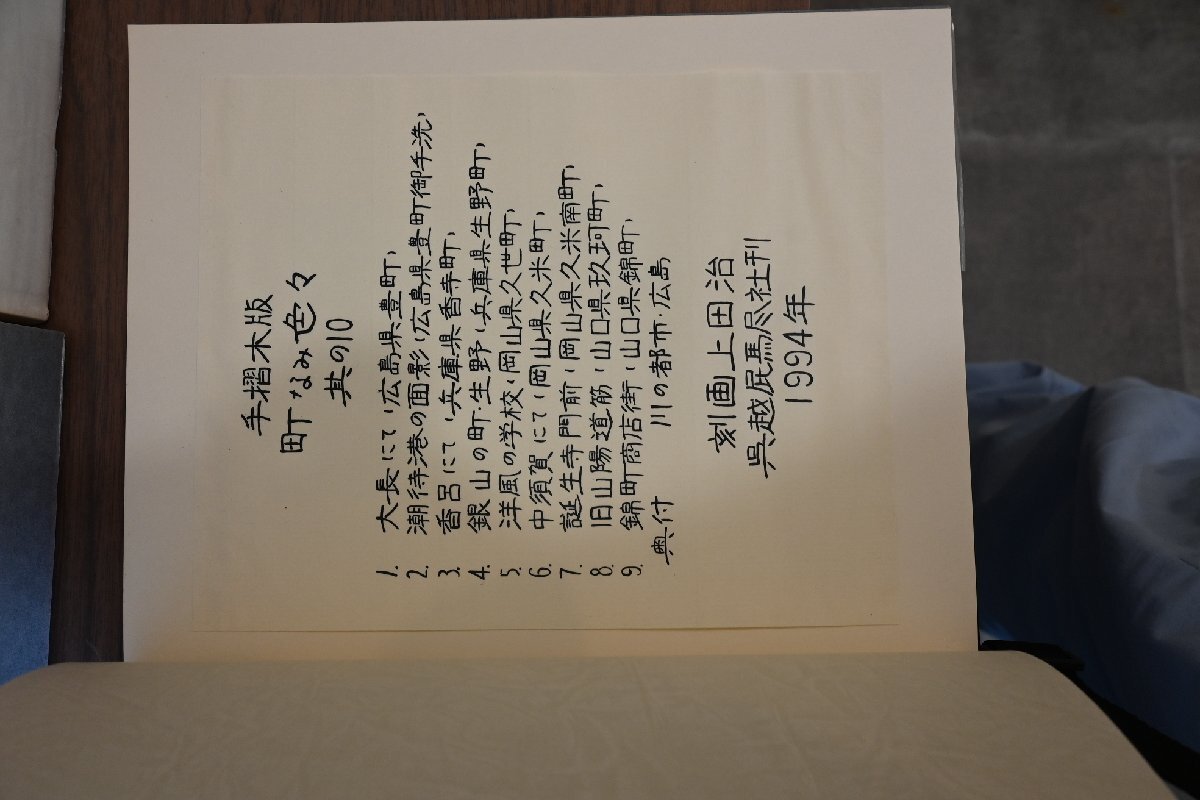 手摺木版
町なみ色々
其の10
1. 大長にて、広島県豊町、
2. 潮待港の面影、広島県豊町御手洗、
3. 香呂にて、兵庫県香寺町、
4. 銀山の町・生野、兵庫県生野町、
5. 洋風の学校、岡山県久世町、
6. 中須賀にて、岡山県久米町、
7. 誕生寺門前、岡山県久米南町、
8. 旧山陽道筋、山口県玖珂町、
9. 錦町商店街、山口県錦町、
奥付 川の都市・広島
刻画上田治
呉越屁馬尽社刊
1994年